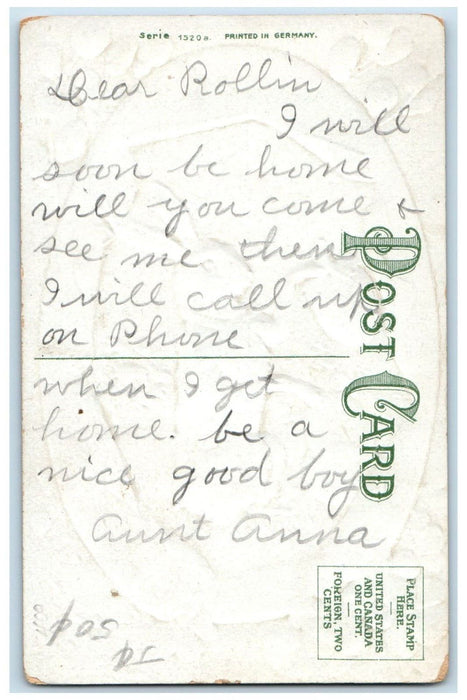 Serie 1520a. PRINTED IN GERMANY.
Dear Rollin
I will
soon be home
will you come &
see me then
I will call up
on Phone
when I get
home. be a
nice good boy
Aunt Anna
POST CARD
PLACE STAMP
HERE.
UNITED STATES
AND CANADA
ONE CENT.
FOREIGN, TWO
CENTS